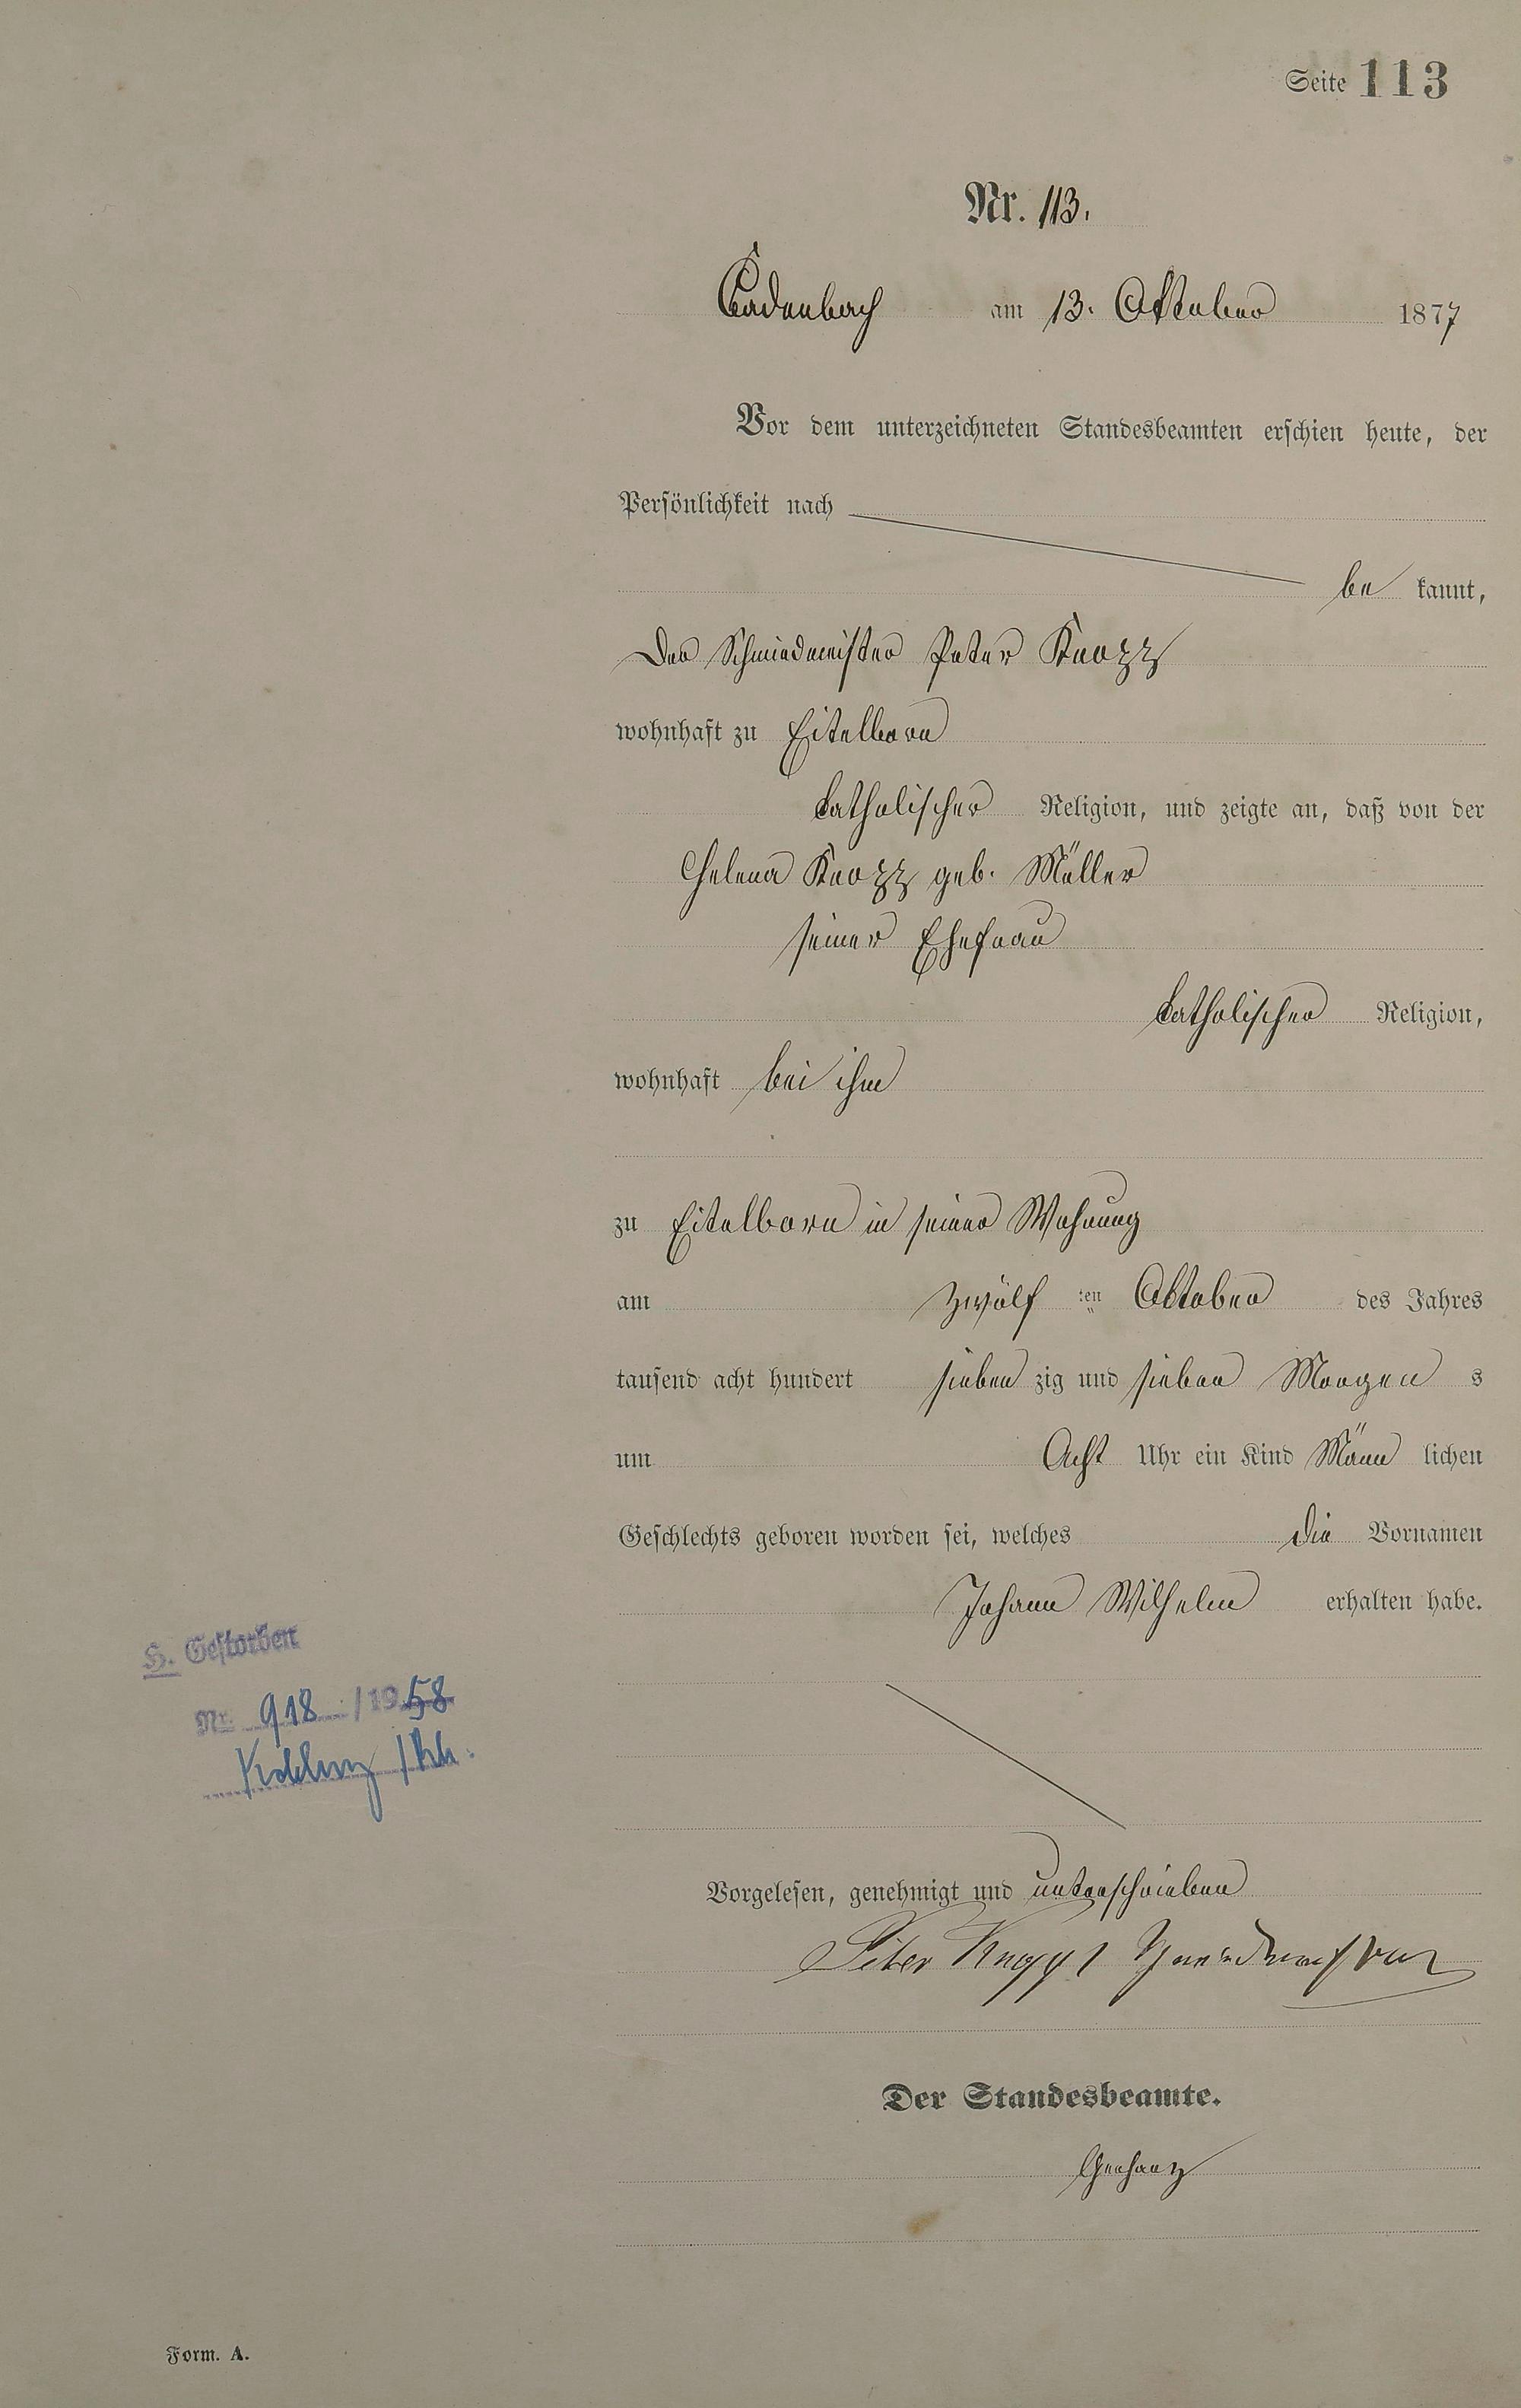 Seite 113
Nr. 113.
Cadenbach am 13. Oktober 1877
Vor dem unterzeichneten Standesbeamten erschien heute, der
Persönlichkeit nach
be kannt,
Der Schmiedmeister Peter Knopp
wohnhaft zu Eitelborn
katholischer Religion, und zeigte an, daß von der
Helena Knopp geb. Müller
seiner Ehefrau
katholischer Religion,
wohnhaft bei ihm
zu Eitelborn in seiner Wohnung
am zwölf ten Oktober des Jahres
tausend acht hundert sieben zig und sieben Morgen s
um Acht Uhr ein Kind Männ lichen
Geschlechts geboren worden sei, welches die Vornamen
Johann Wilhelm erhalten habe.
H. Gestorben
Nr. 918 / 1958
Koblenz / Rh.
Vorgelesen, genehmigt und unterschrieben
Peter Knopp Schmiedmeister
Der Standesbeamte.
Gerharz
Form. A.